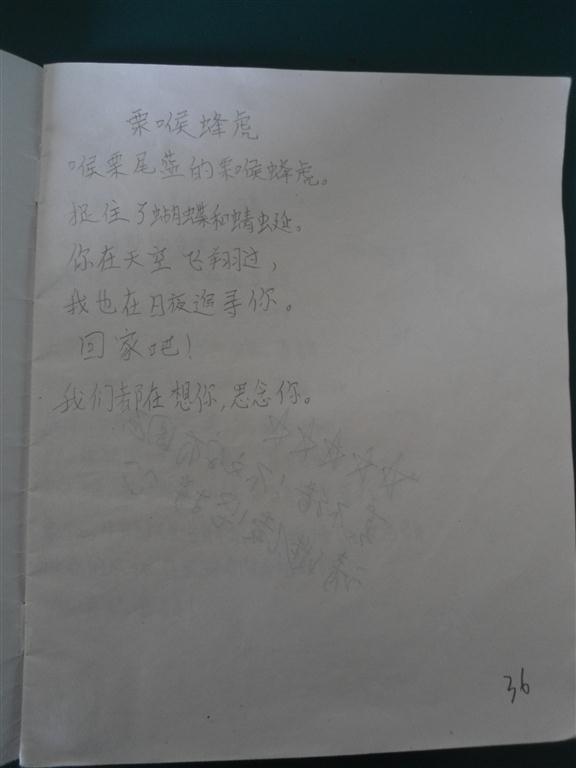 栗喉蜂虎
喉栗尾蓝的栗喉蜂虎。
捉住了蝴蝶和蜻蜓。
你在天空飞翔过，
我也在日夜追寻你。
回家吧！
我们都在想你，思念你。
36